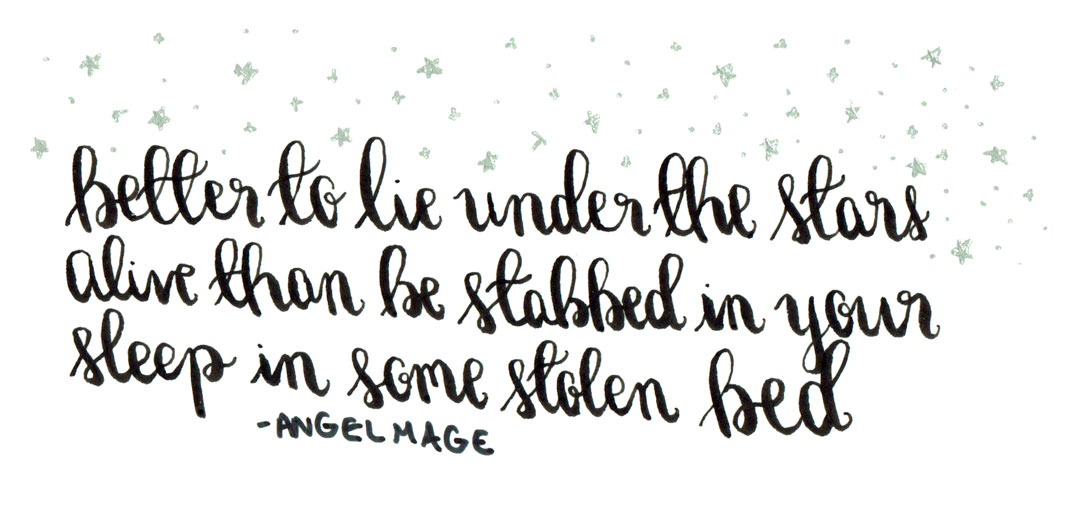 better to lie under the stars
alive than be stabbed in your
sleep in some stolen bed
-ANGEL MAGE